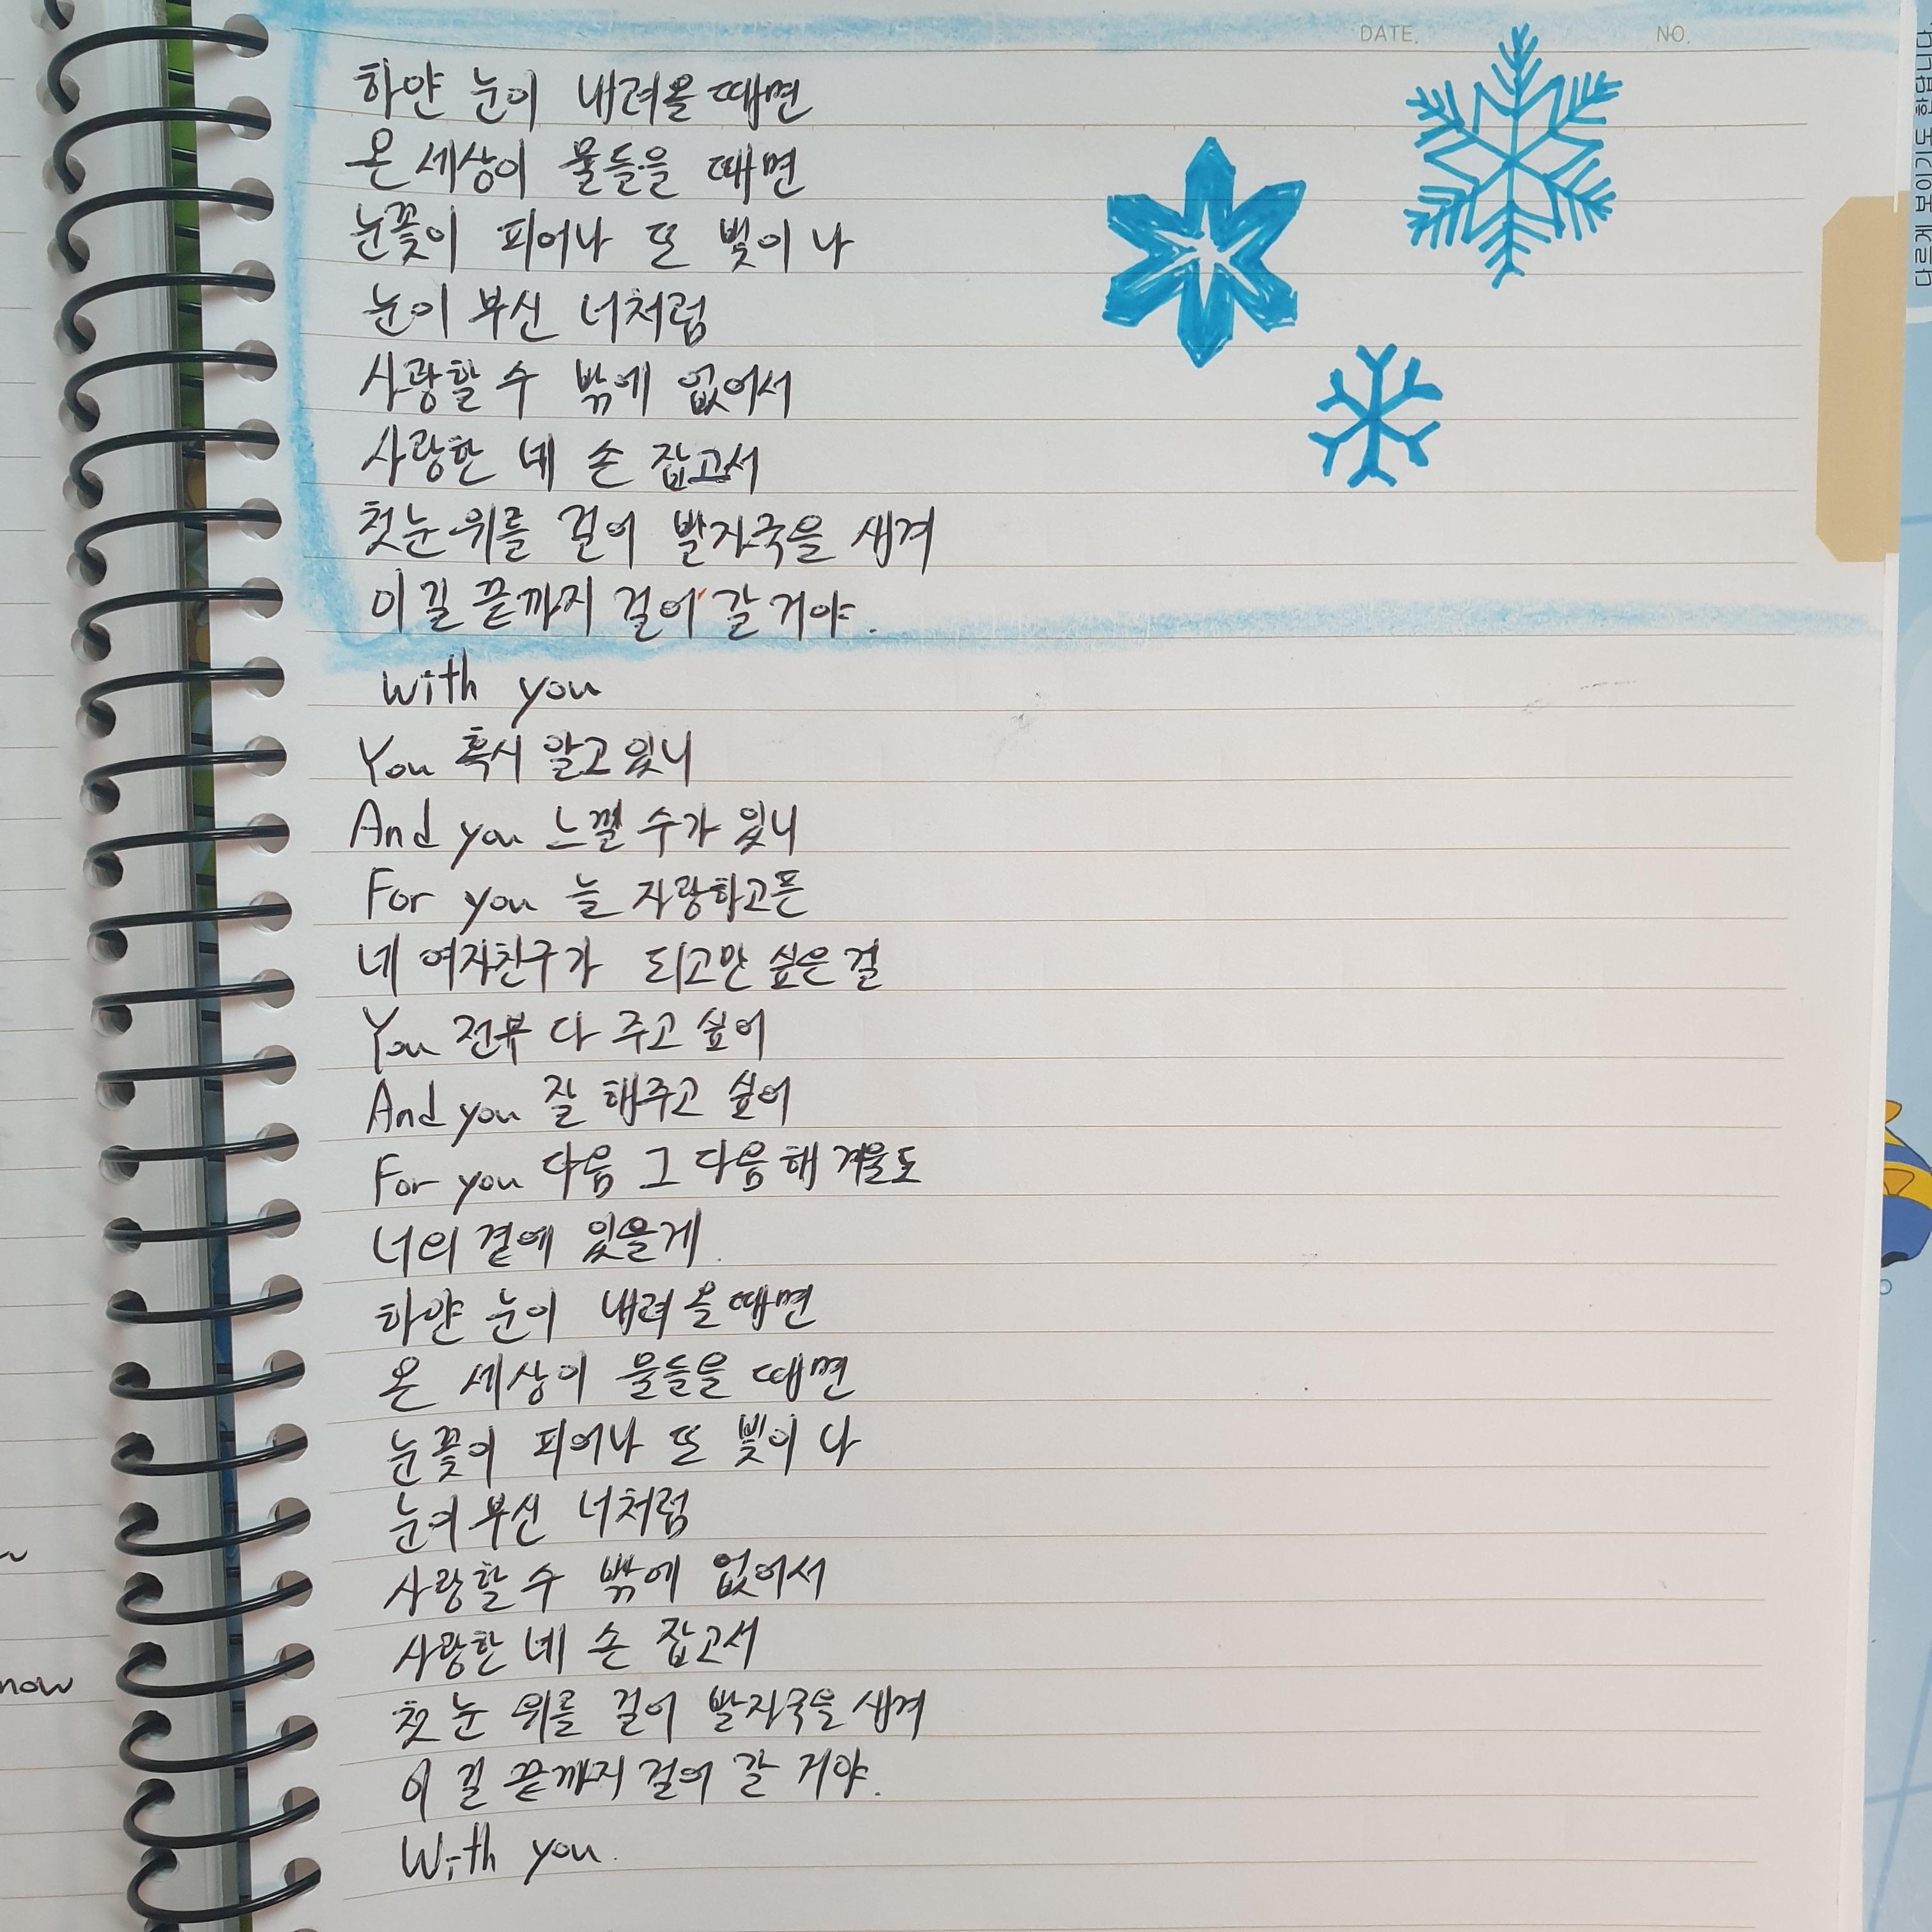 DATE. NO.
하얀 눈이 내려올 때면
온 세상이 물들을 때면
눈꽃이 피어나 또 빛이 나
눈이 부신 너처럼
사랑할 수 밖에 없어서
사랑한 네 손 잡고서
첫눈 위를 걸어 발자국을 새겨
이 길 끝까지 걸어 갈 거야.
with you
You 혹시 알고 있니
And you 느낄 수가 있니
For you 늘 자랑하고픈
네 여자친구가 되고만 싶은 걸
You 전부 다 주고 싶어
And you 잘 해주고 싶어
For you 다음 그 다음 해 겨울도
너의 곁에 있을게.
하얀 눈이 내려 올 때면
온 세상이 물들을 때면
눈꽃이 피어나 또 빛이 나
눈이 부신 너처럼
사랑할 수 밖에 없어서
사랑한 네 손 잡고서
첫 눈 위를 걸어 발자국을 새겨
이 길 끝까지 걸어 갈 거야.
With you.
now